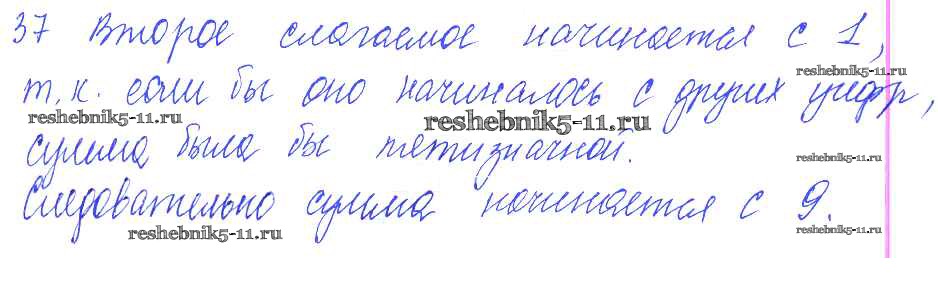 37 Второе слагаемое начинается с 1,
reshebnik5-11.ru
т.к. если бы оно начиналось с других цифр,
reshebnik5-11.ru
reshebnik5-11.ru
сумма была бы пятизначной.
reshebnik5-11.ru
Следовательно сумма начинается с 9.
reshebnik5-11.ru
reshebnik5-11.ru